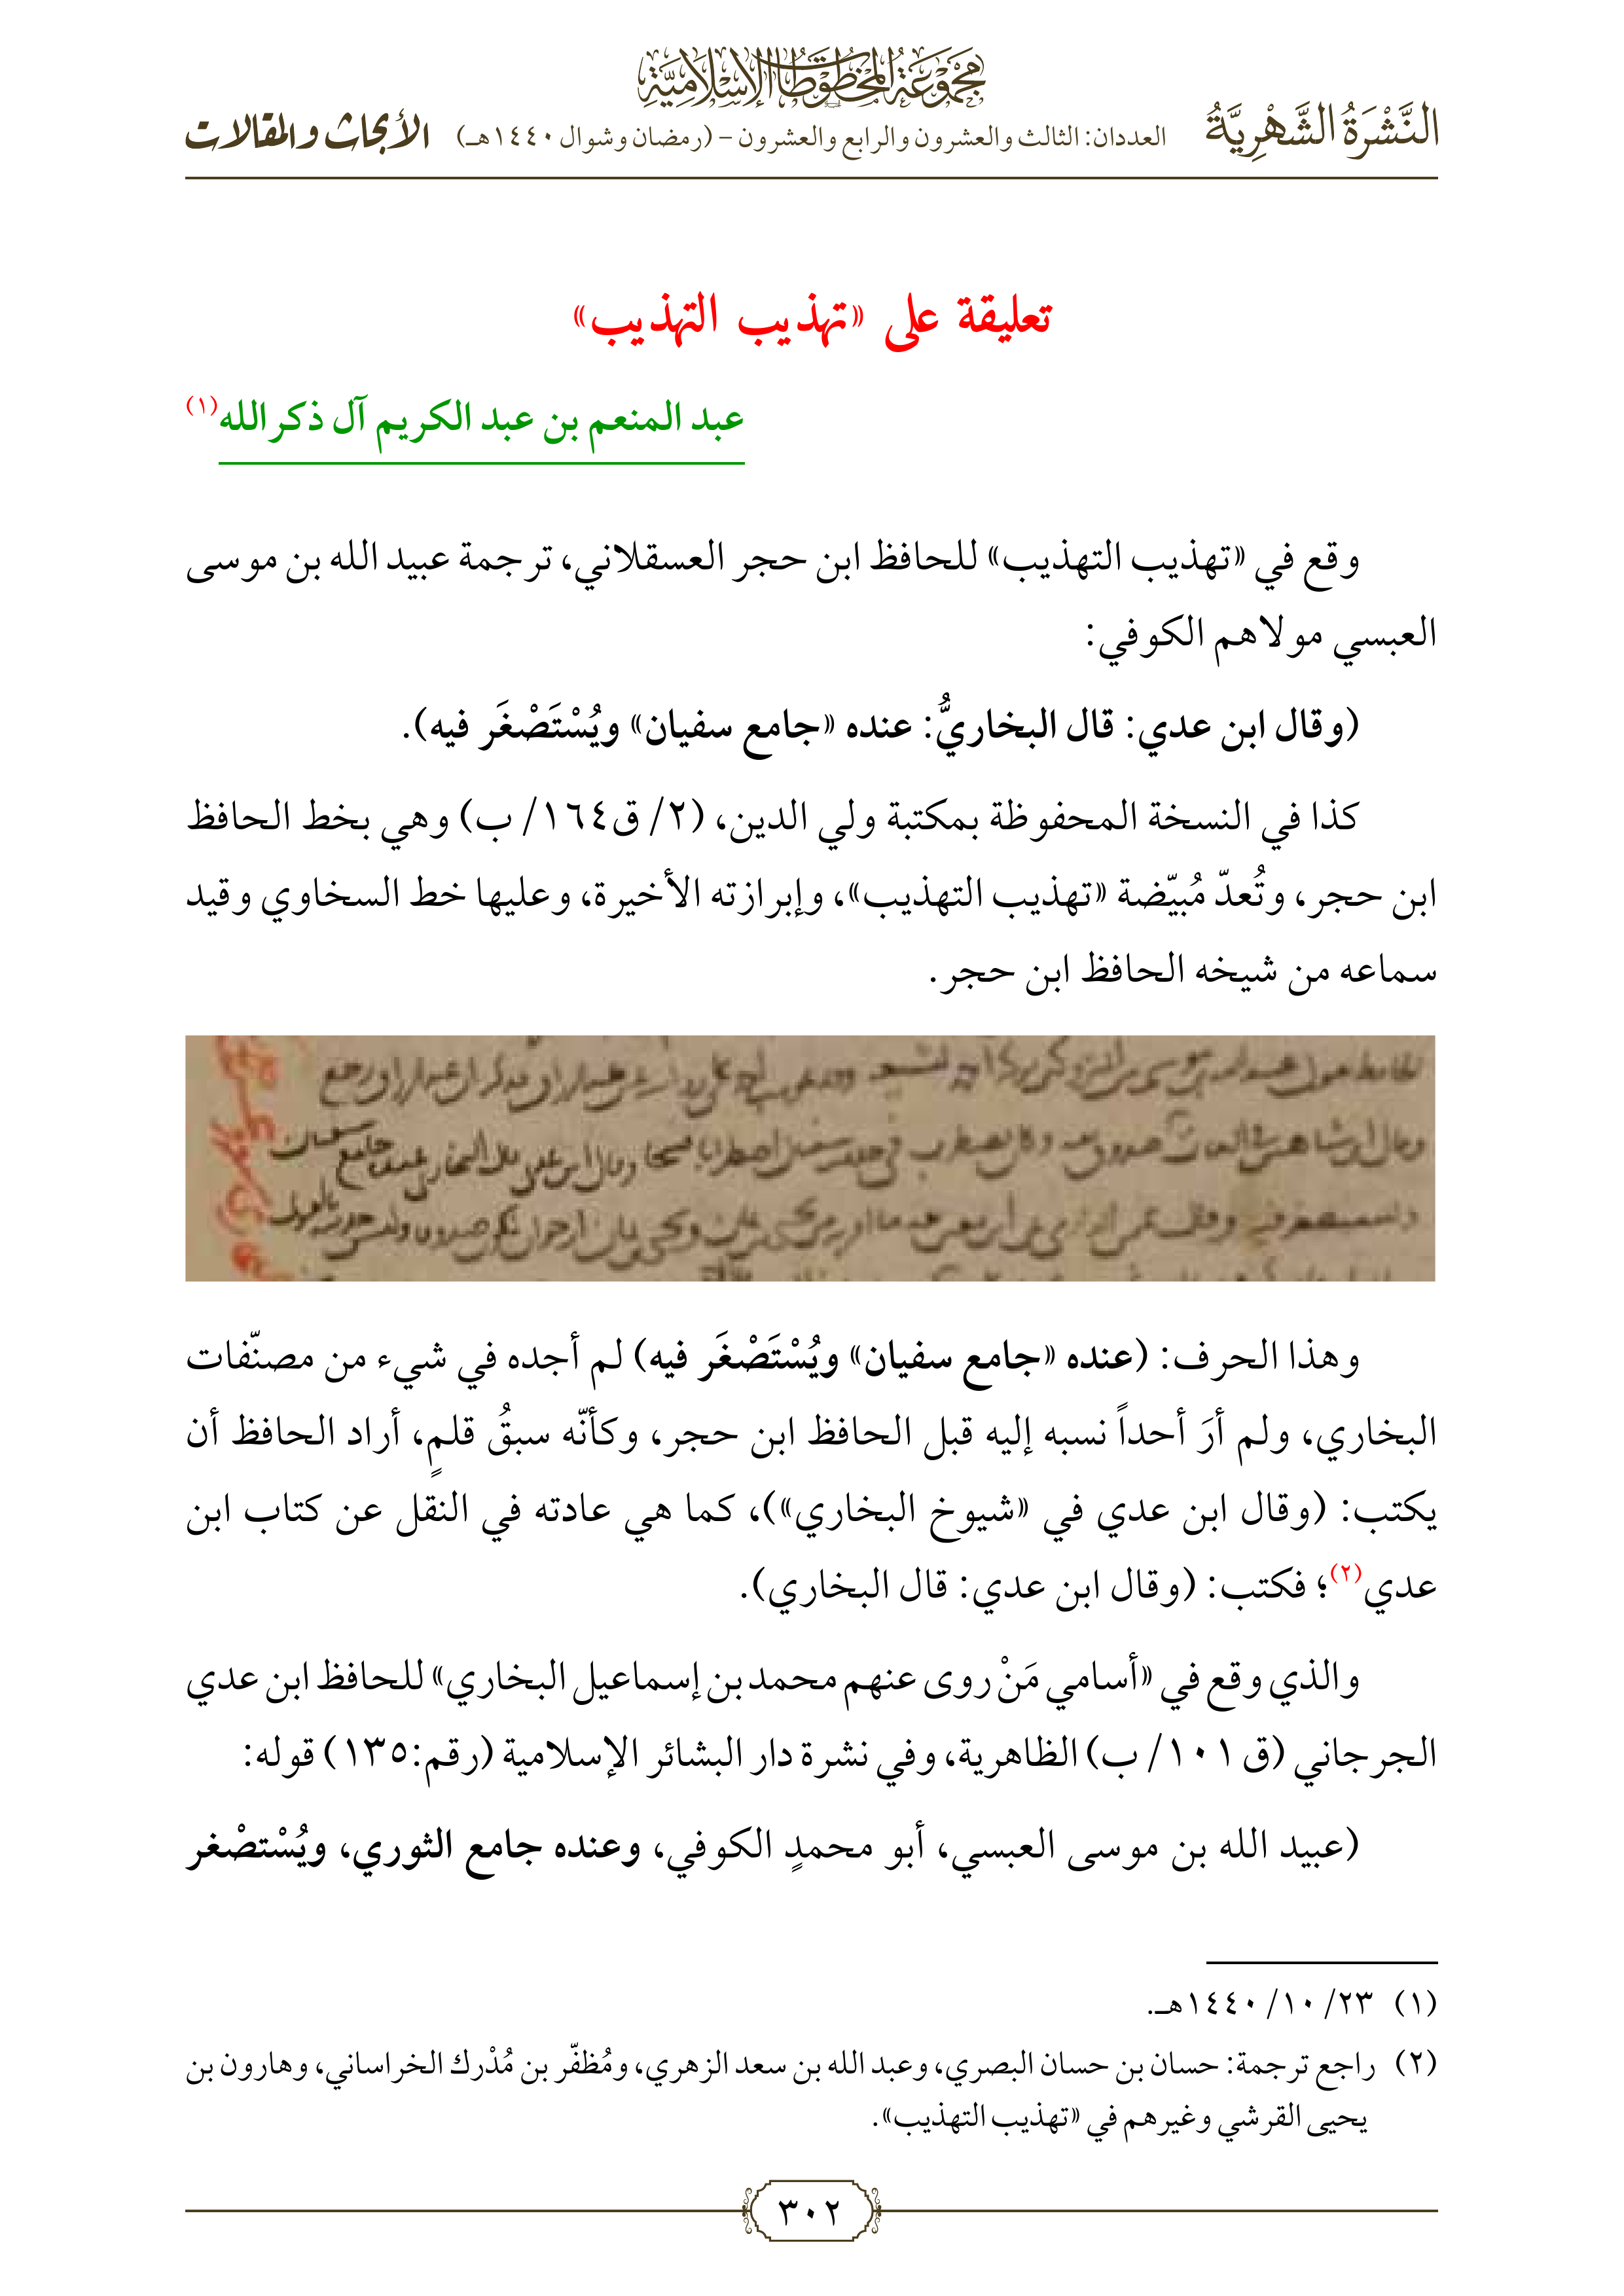 مجموعة المخطوطات الإسلامية
النَّشْرَةُ الشَّهْرِيَّةُ العددان: الثالث والعشرون والرابع والعشرون – (رمضان وشوال ١٤٤٠هـ) الأبحاث والمقالات
تعليقة على «تهذيب التهذيب»
عبد المنعم بن عبد الكريم آل ذكر الله(١)
وقع في «تهذيب التهذيب» للحافظ ابن حجر العسقلاني، ترجمة عبيد الله بن موسى
العبسي مولاهم الكوفي:
(وقال ابن عدي: قال البخاريُّ: عنده «جامع سفيان» ويُسْتَصْغَر فيه).
كذا في النسخة المحفوظة بمكتبة ولي الدين، (٢/ ق١٦٤/ ب) وهي بخط الحافظ
ابن حجر، وتُعدّ مُبيّضة «تهذيب التهذيب»، وإبرازته الأخيرة، وعليها خط السخاوي وقيد
سماعه من شيخه الحافظ ابن حجر.
وهذا الحرف: (عنده «جامع سفيان» ويُسْتَصْغَر فيه) لم أجده في شيء من مصنّفات
البخاري، ولم أرَ أحداً نسبه إليه قبل الحافظ ابن حجر، وكأنّه سبقُ قلمٍ، أراد الحافظ أن
يكتب: (وقال ابن عدي في «شيوخ البخاري»)، كما هي عادته في النقل عن كتاب ابن
عدي(٢)؛ فكتب: (وقال ابن عدي: قال البخاري).
والذي وقع في «أسامي مَنْ روى عنهم محمد بن إسماعيل البخاري» للحافظ ابن عدي
الجرجاني (ق ١٠١/ ب) الظاهرية، وفي نشرة دار البشائر الإسلامية (رقم:١٣٥) قوله:
(عبيد الله بن موسى العبسي، أبو محمدٍ الكوفي، وعنده جامع الثوري، ويُسْتصْغر
(١) ٢٣/ ١٠/ ١٤٤٠هـ.
(٢) راجع ترجمة: حسان بن حسان البصري، وعبد الله بن سعد الزهري، ومُظفّر بن مُدْرك الخراساني، وهارون بن
يحيى القرشي وغيرهم في «تهذيب التهذيب».
٣٠٢